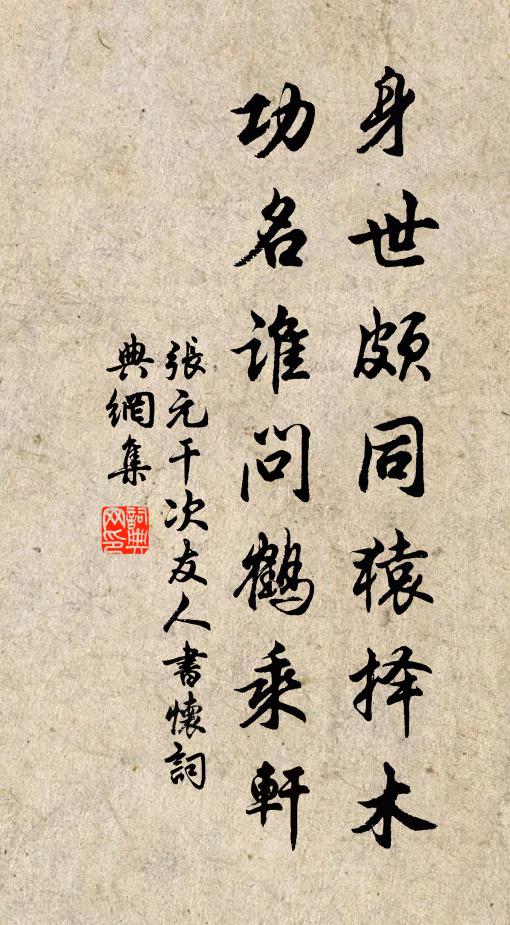 身世頗同猿择木
功名誰問鶴乘軒
張元干次友人書懷詞
典網集
詞典网印